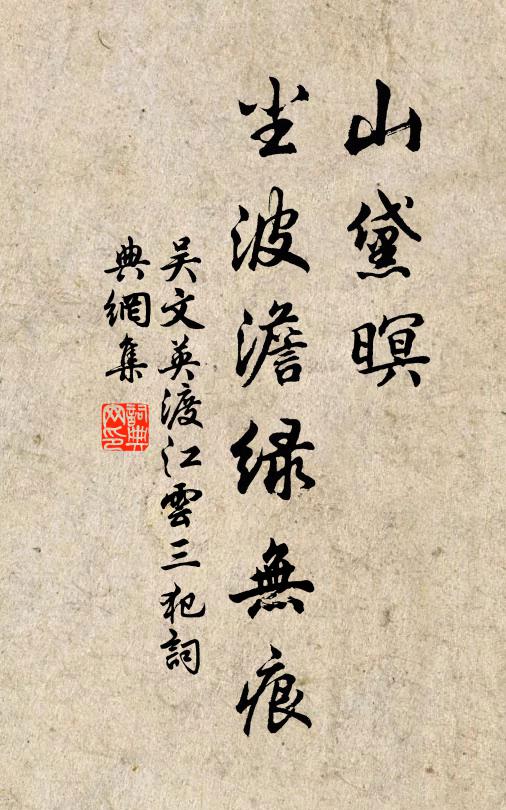 山黛暝
尘波澹绿無痕
吴文英渡江雲三犯詞
典網集
詞典
网印